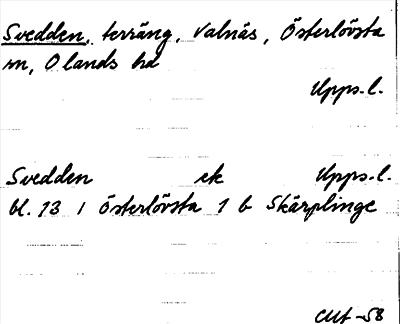 Svedden, terräng, Valnäs, Österlövsta
sn, Olands hd
Upps. l.
Svedden ek Upps. l.
bl. 13 i Österlövsta 1 b Skärplinge
CMt -58